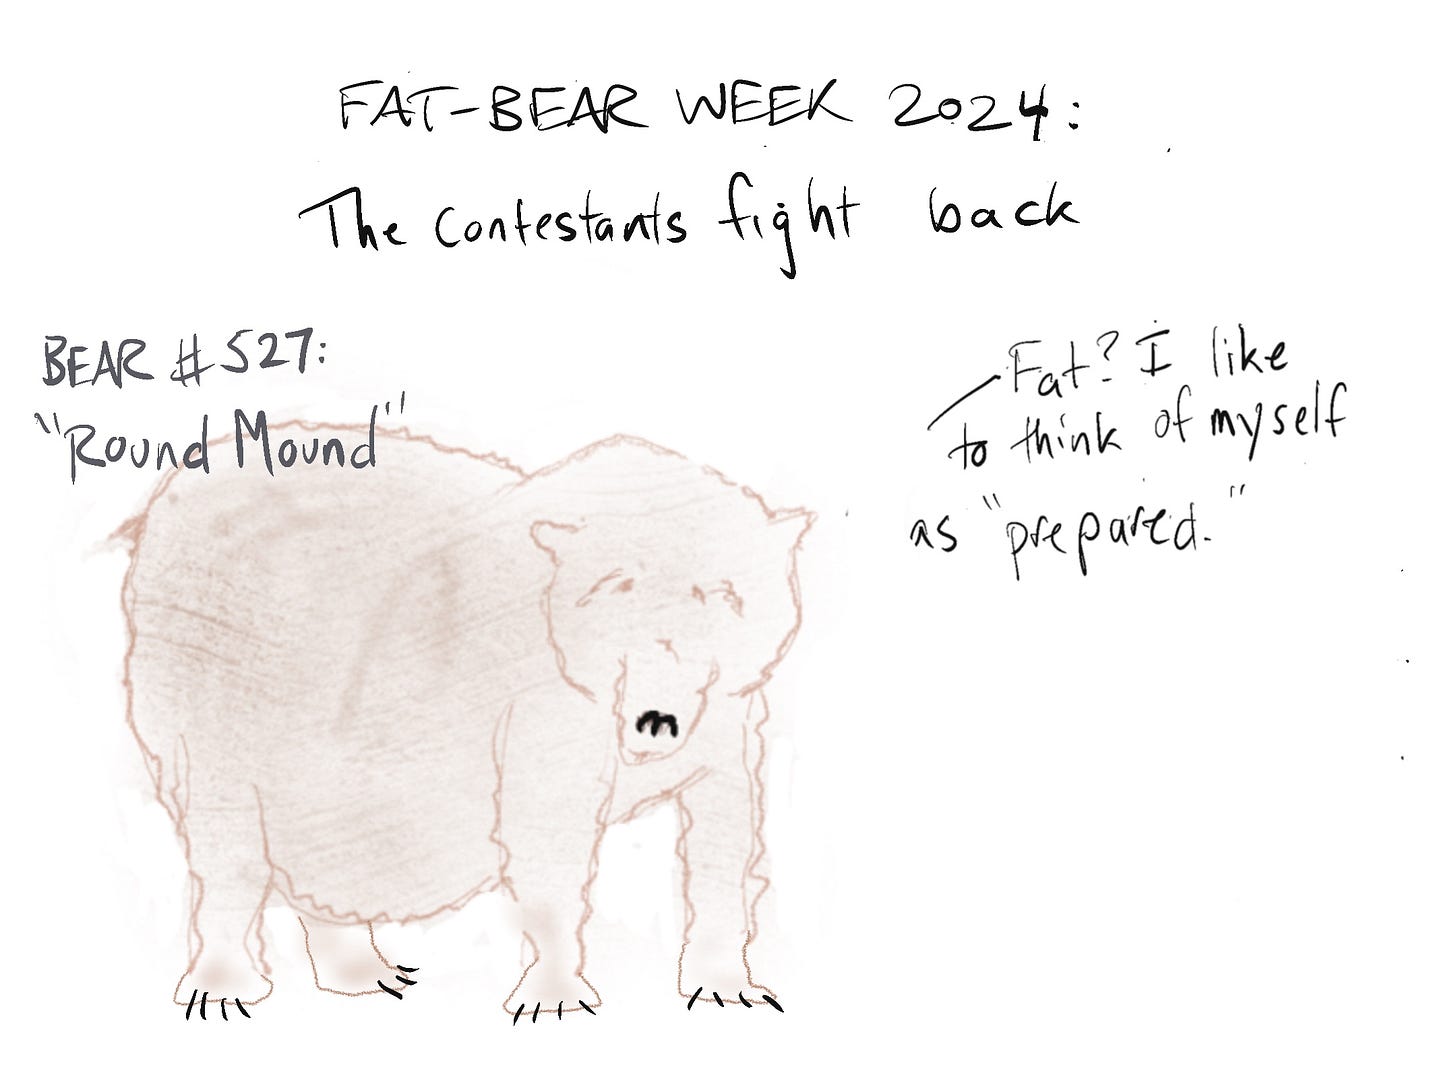 FAT-BEAR WEEK 2024:
The contestants fight back
BEAR #527:
"Round Mound"
Fat? I like
to think of myself
as "prepared."